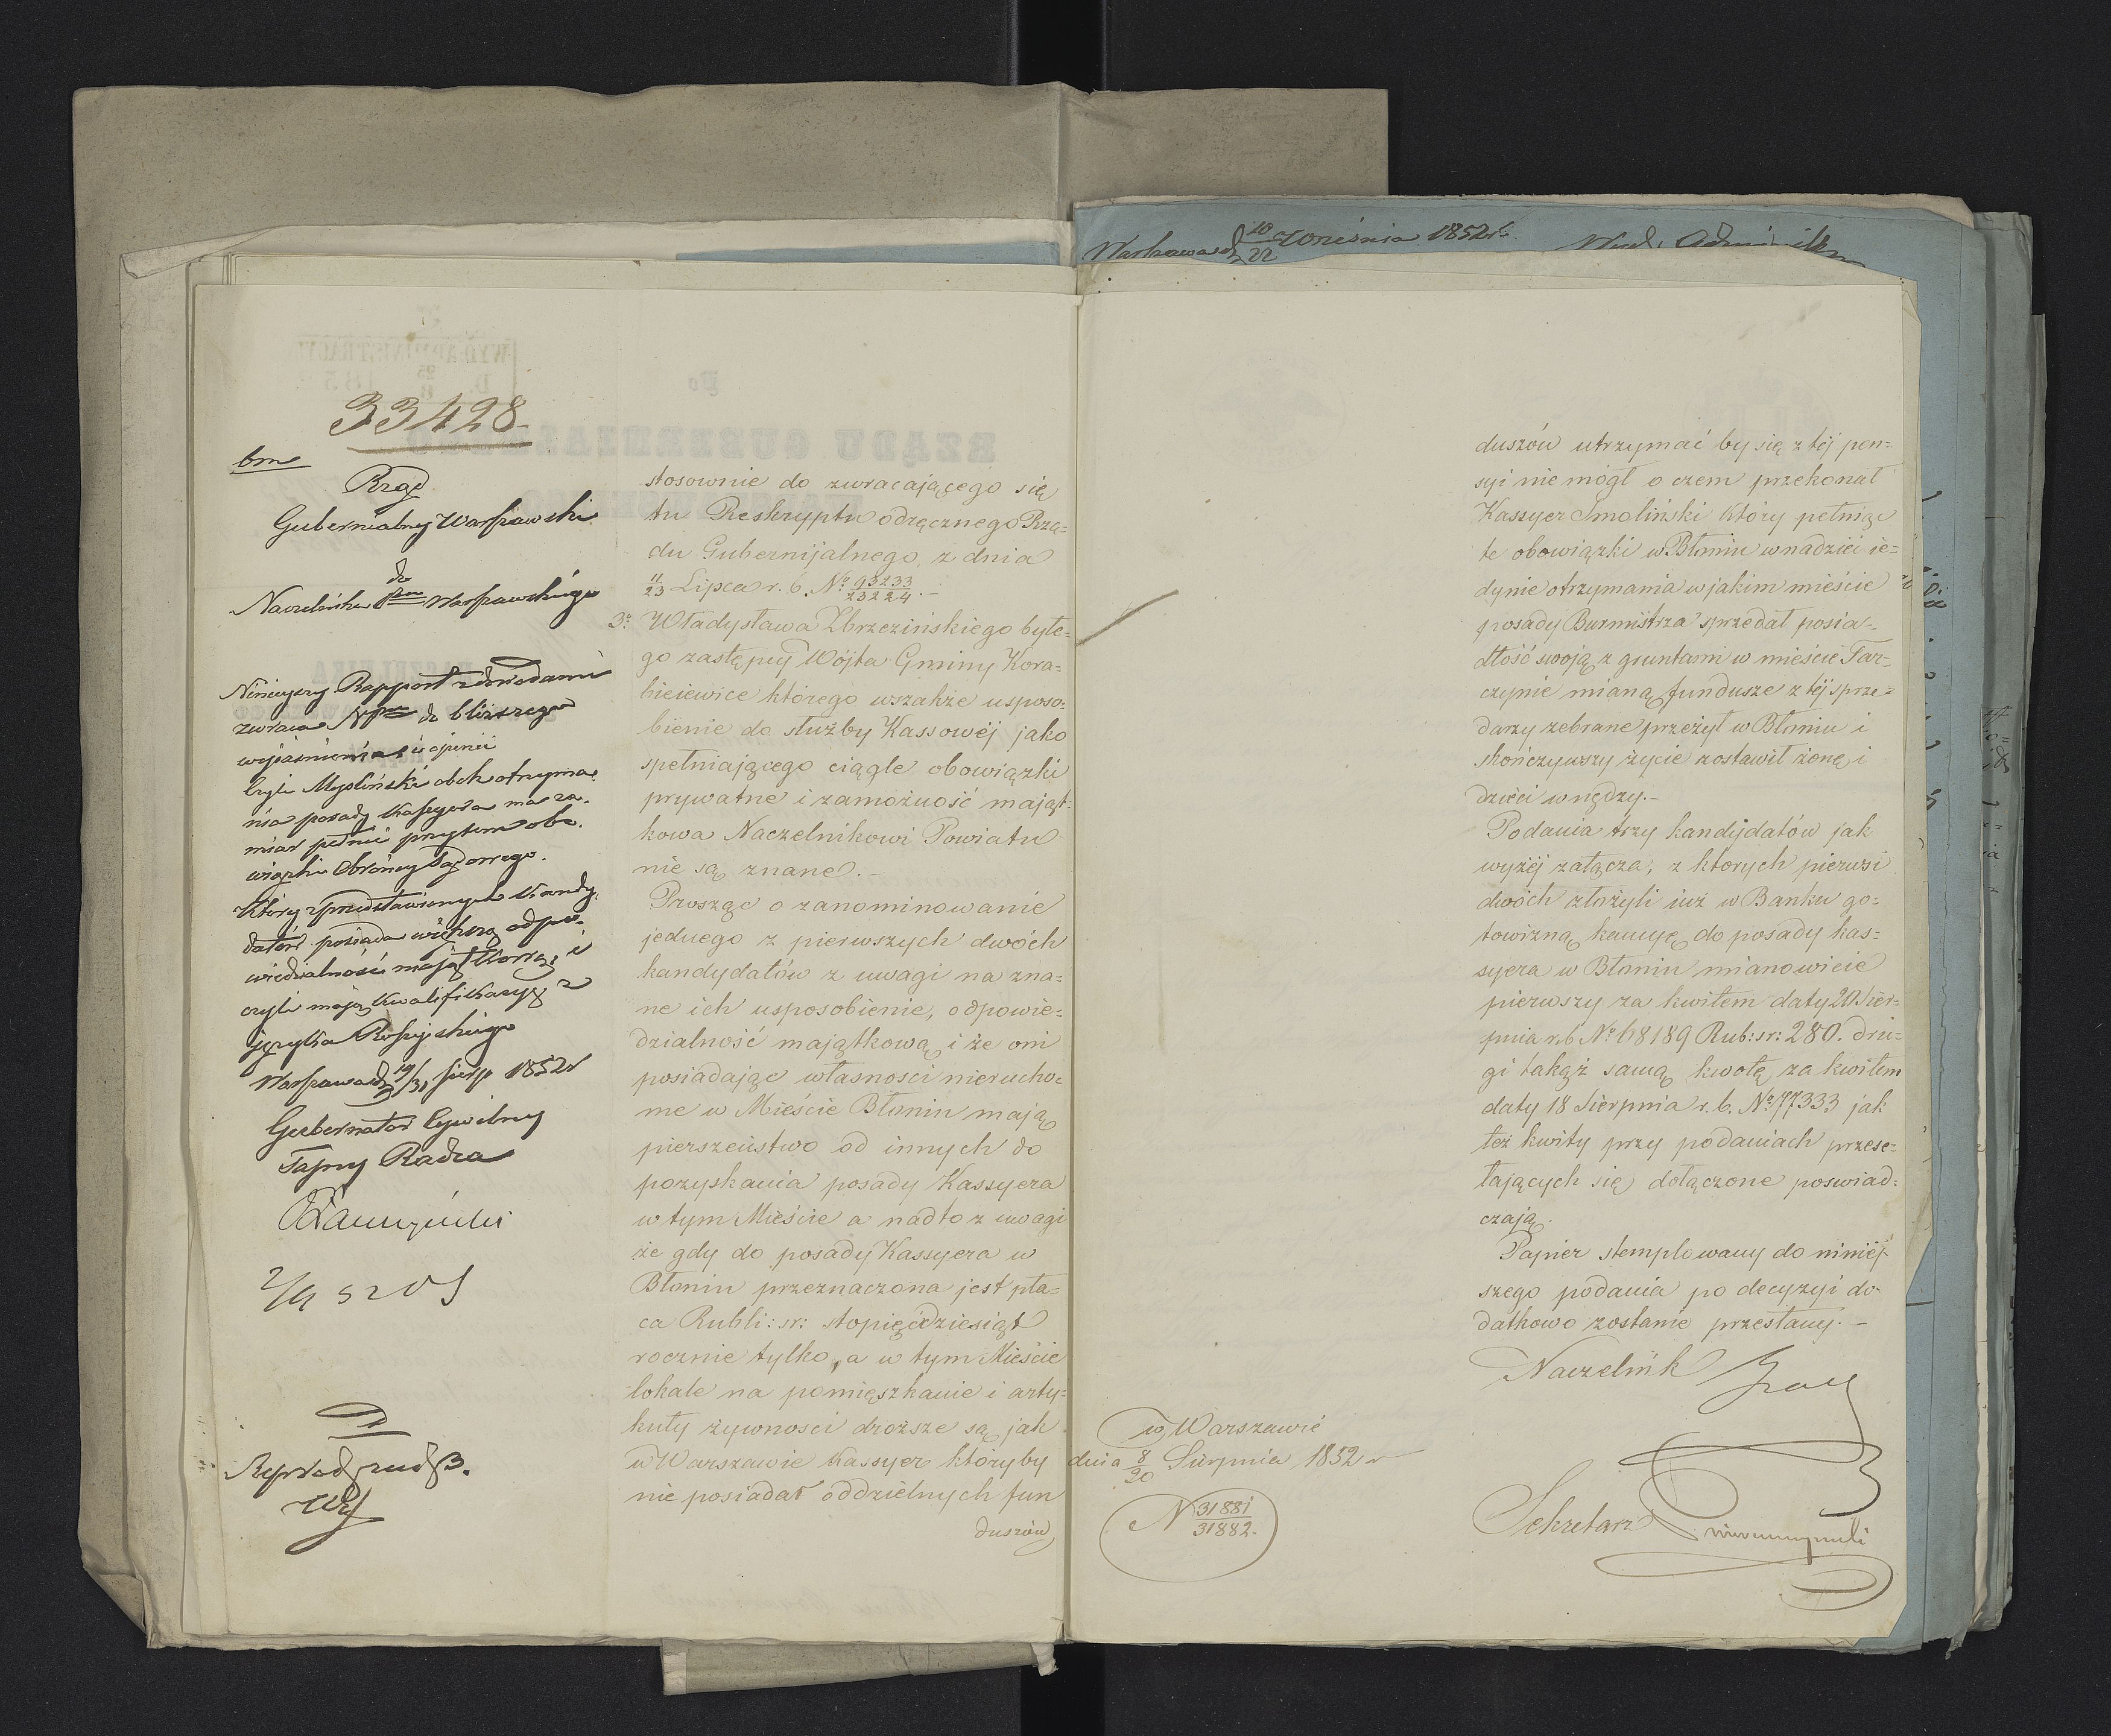 Warszawa d 10/22 Września 1852 r.
33428
Rząd
Gubernialny Warszawski
do
Naczelnika Ptu Warszawskiego
Niniejszy Rapport z dowodami
zwraca Nptu do bliższego
wyjaśnienia i opinii
czyli Myśliński obok otrzyma-
nia posady Kassyera ma za-
miar pełnić przytem obo-
wiązki Obrońcy Sądowego.
Który z przedstawionych Kandy-
datów posiada większą odpo-
wiedzialność majątkową, i
czyli mają kwalifikacyę z
języka Rossyjskiego
Warszawa d 19/31 Sierp 1852 r
Gubernator Cywilny
Tajny Radca
stosownie do zwracającego się
tu Reskryptu odręcznego Rzą-
du Gubernijalnego z dnia
11/23 Lipca r. b. No 93233/23224.-
3o Władysława Zbrzezińskiego byłe-
go zastępcy Wójta Gminy Kora-
biewice którego wszakże usposo-
bienie do służby Kassowéj jako
spełniającego ciągle obowiązki
prywatne i zamożność mająt-
kowa Naczelnikowi Powiatu
nie są znane.-
Prosząc o zanominowanie
jednego z pierwszych dwóch
kandydatów z uwagi na zna-
ne ich usposobienie, odpowie-
dzialność majątkową i że oni
posiadając własnosci nierucho-
me w Mieście Błoniu mają
pierszeństwo od innych do
pozyskania posady Kassyera
w tym Mieście a nadto z uwagi
że gdy do posady Kassyera w
Błoniu przeznaczona jest pła-
ca Rubli: sr: stopięćdziesiąt
rocznie tylko, a w tym Mieście
lokale na pomięszkanie i arty-
kuły żywnosci droższe są jak
w Warszawie Kassyer któryby
nie posiadał oddzielnych fun
duszów
duszów utrzymać by się z téj pen-
syi nie mógł o czem przekonał
Kassyer Smoliński który pełniąc
te obowiązki w Błoniu w nadziei ie-
dynie otrzymania w jakim mieście
posady Burmistrza sprzedał posia-
dłość swoją z gruntami w mieście Tar-
czynie mianą fundusze z téj sprze-
darzy zebrane przeżył w Błoniu i
skończywszy życie zostawił żonę i
dzieci w nędzy.-
Podania trzy kandydatów jak
wyżéj załącza, z których pierwsi
dwóch złożyli iuż w Banku go-
towizną kaucyę do posady kas-
syera w Błoniu mianowicie
pierwszy za kwitem daty 20 Sier-
pnia r.b No 68189 Rub: sr: 280. dru-
gi takąż samą kwotę za kwitem
daty 18 Sierpnia r. b. No 77333 jak
też kwity przy podaniach przese-
łających się dołączone poswiad-
czają.
Papier stemplowany do niniéj-
szego podania po decyzyi do-
datkowo zostanie przesłany.-
Naczelnik
w Warszawie
dnia 8/20 Sierpnia 1852 r
N 31881/31882.
Sekretarz